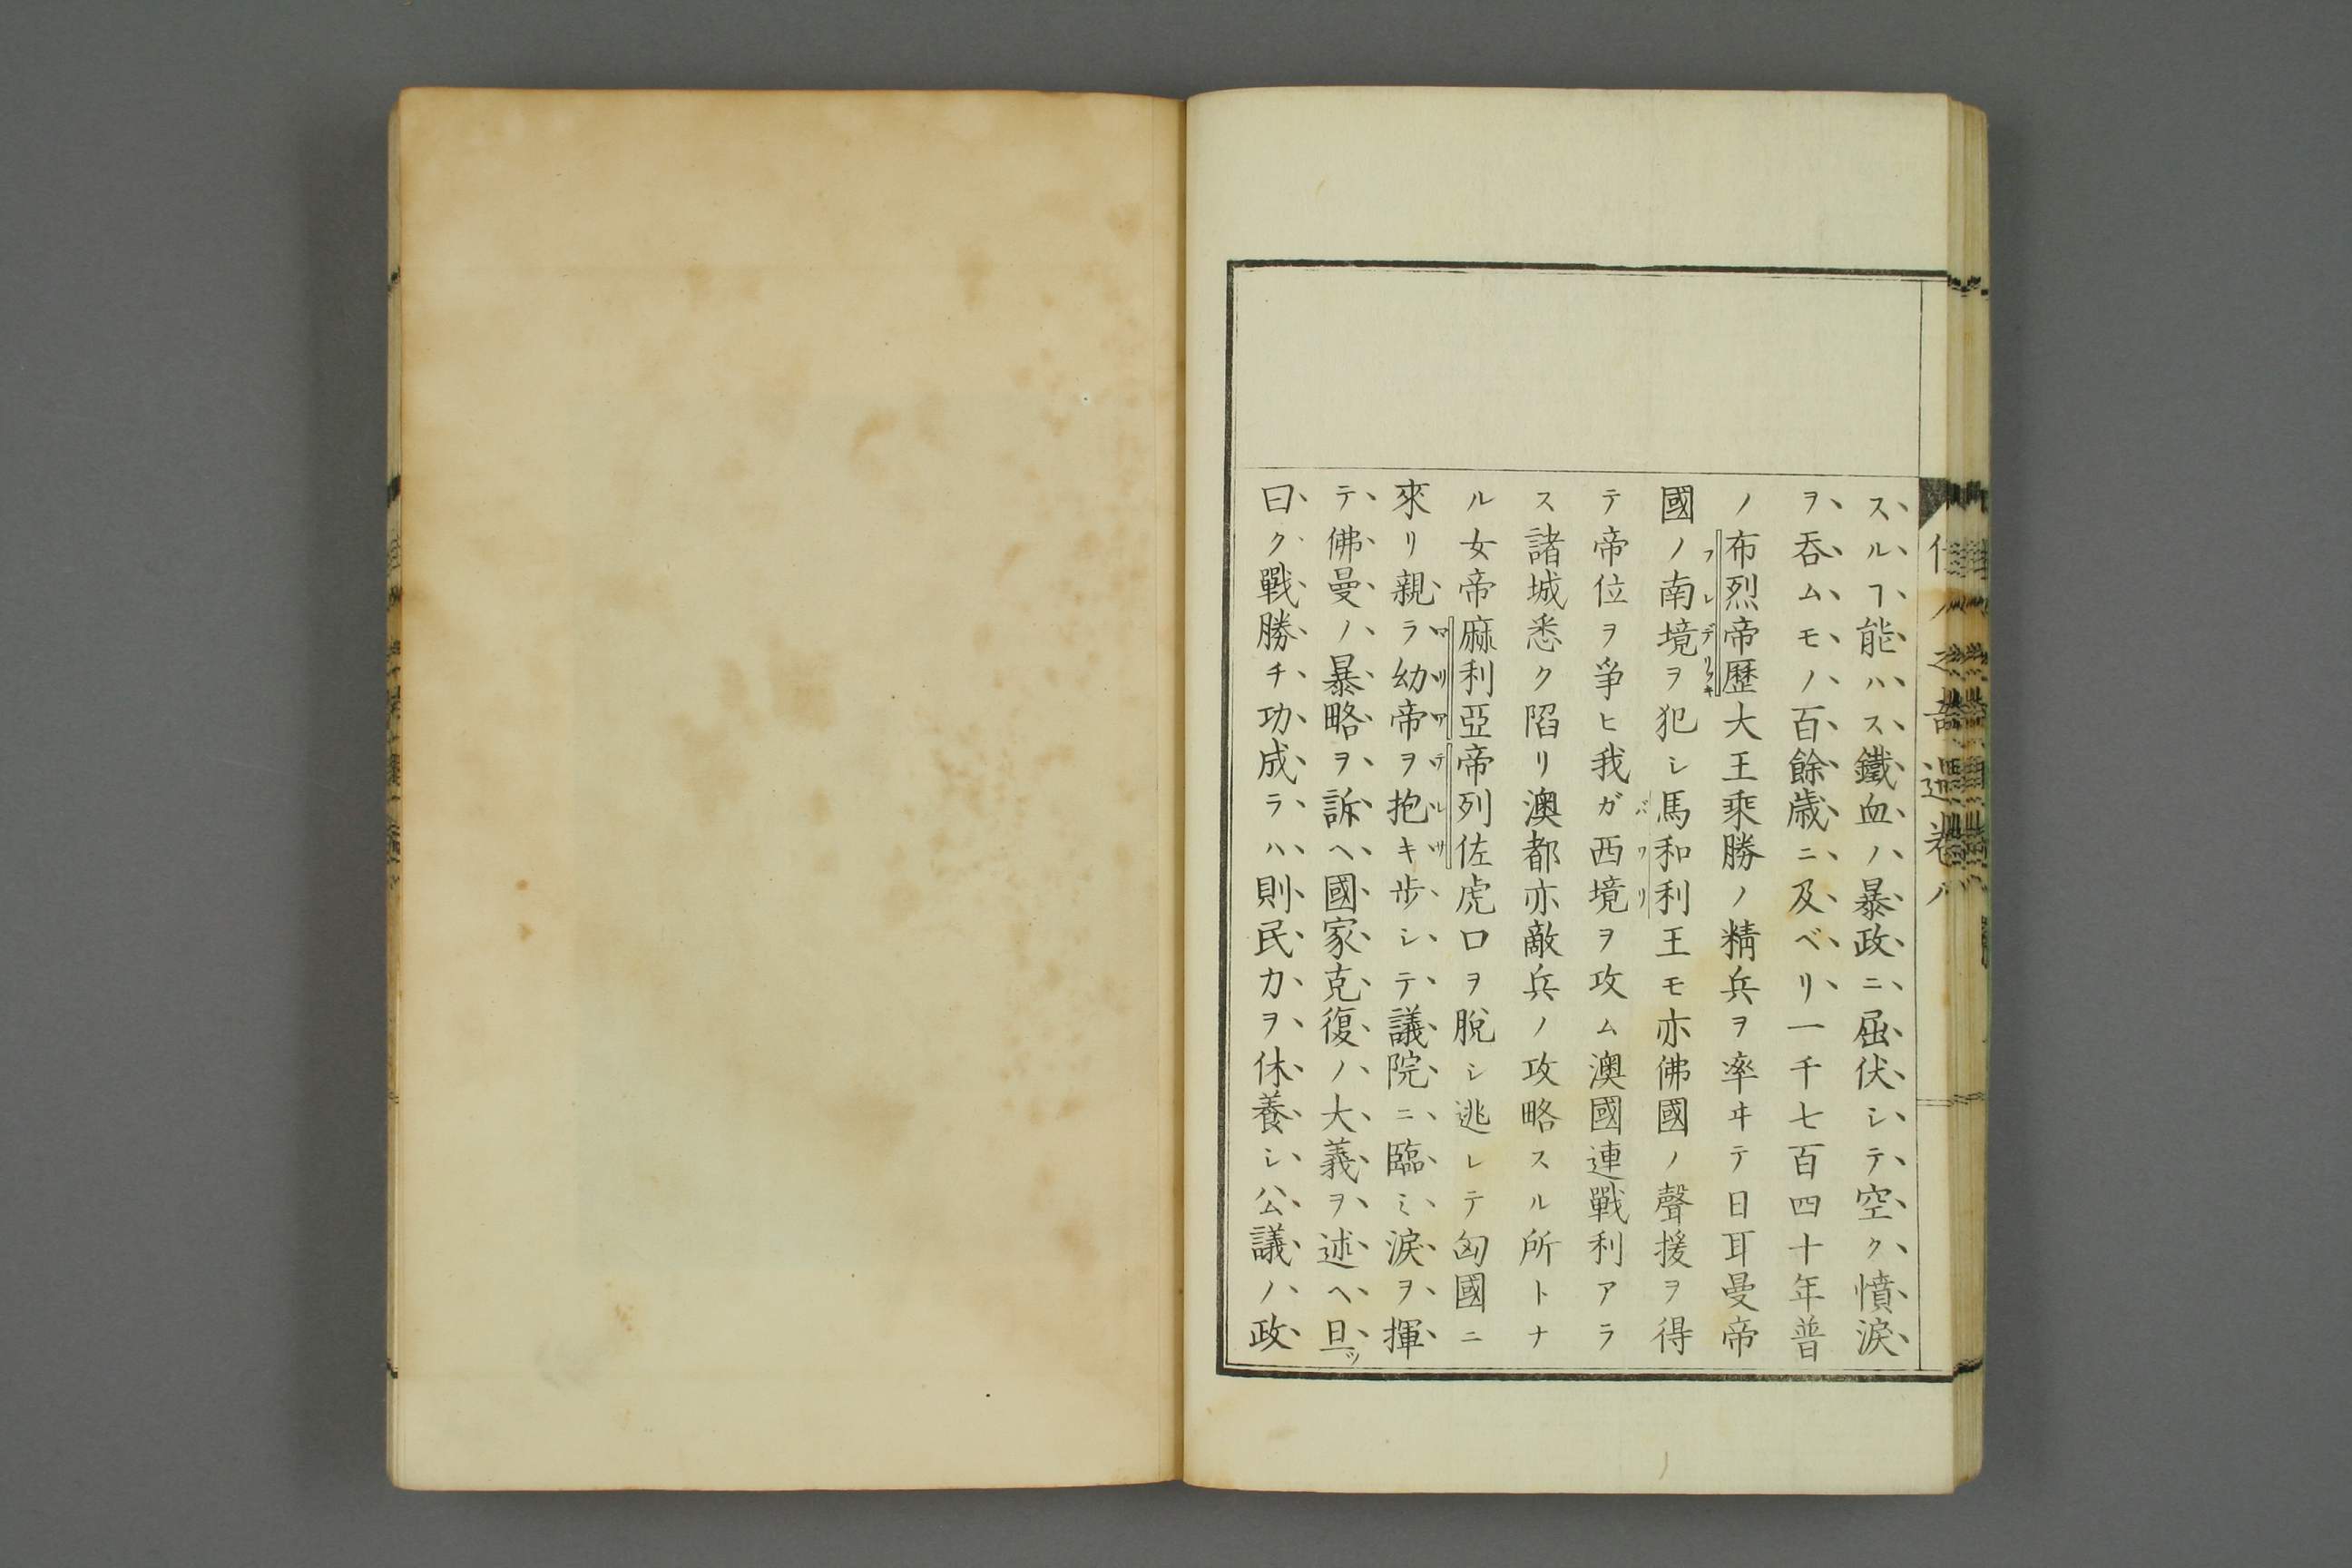 スルヿ能ハス鐵血ノ暴政ニ屈伏シテ空ク憤淚
ヲ呑ムモノ百餘歲ニ及ベリ一千七百四十年普
ノ布烈帝歷大王乘勝ノ精兵ヲ率ヰテ日耳曼帝
フレデリッキ
國ノ南境ヲ犯シ馬和利王モ亦佛國ノ聲援ヲ得
バワリ
テ帝位ヲ爭ヒ我ガ西境ヲ攻ム澳國連戰利アラ
ス諸城悉ク陷リ澳都亦敵兵ノ攻略スル所トナ
ル女帝麻利亞帝列佐虎口ヲ脫シ逃レテ匈國ニ
マリアテルサ
來リ親ラ幼帝ヲ抱キ步シテ議院ニ臨ミ淚ヲ揮
テ佛曼ノ暴略ヲ訴ヘ國家克復ノ大義ヲ述ヘ且ツ
曰ク戰勝チ功成ラハ則民力ヲ休養シ公議ノ政